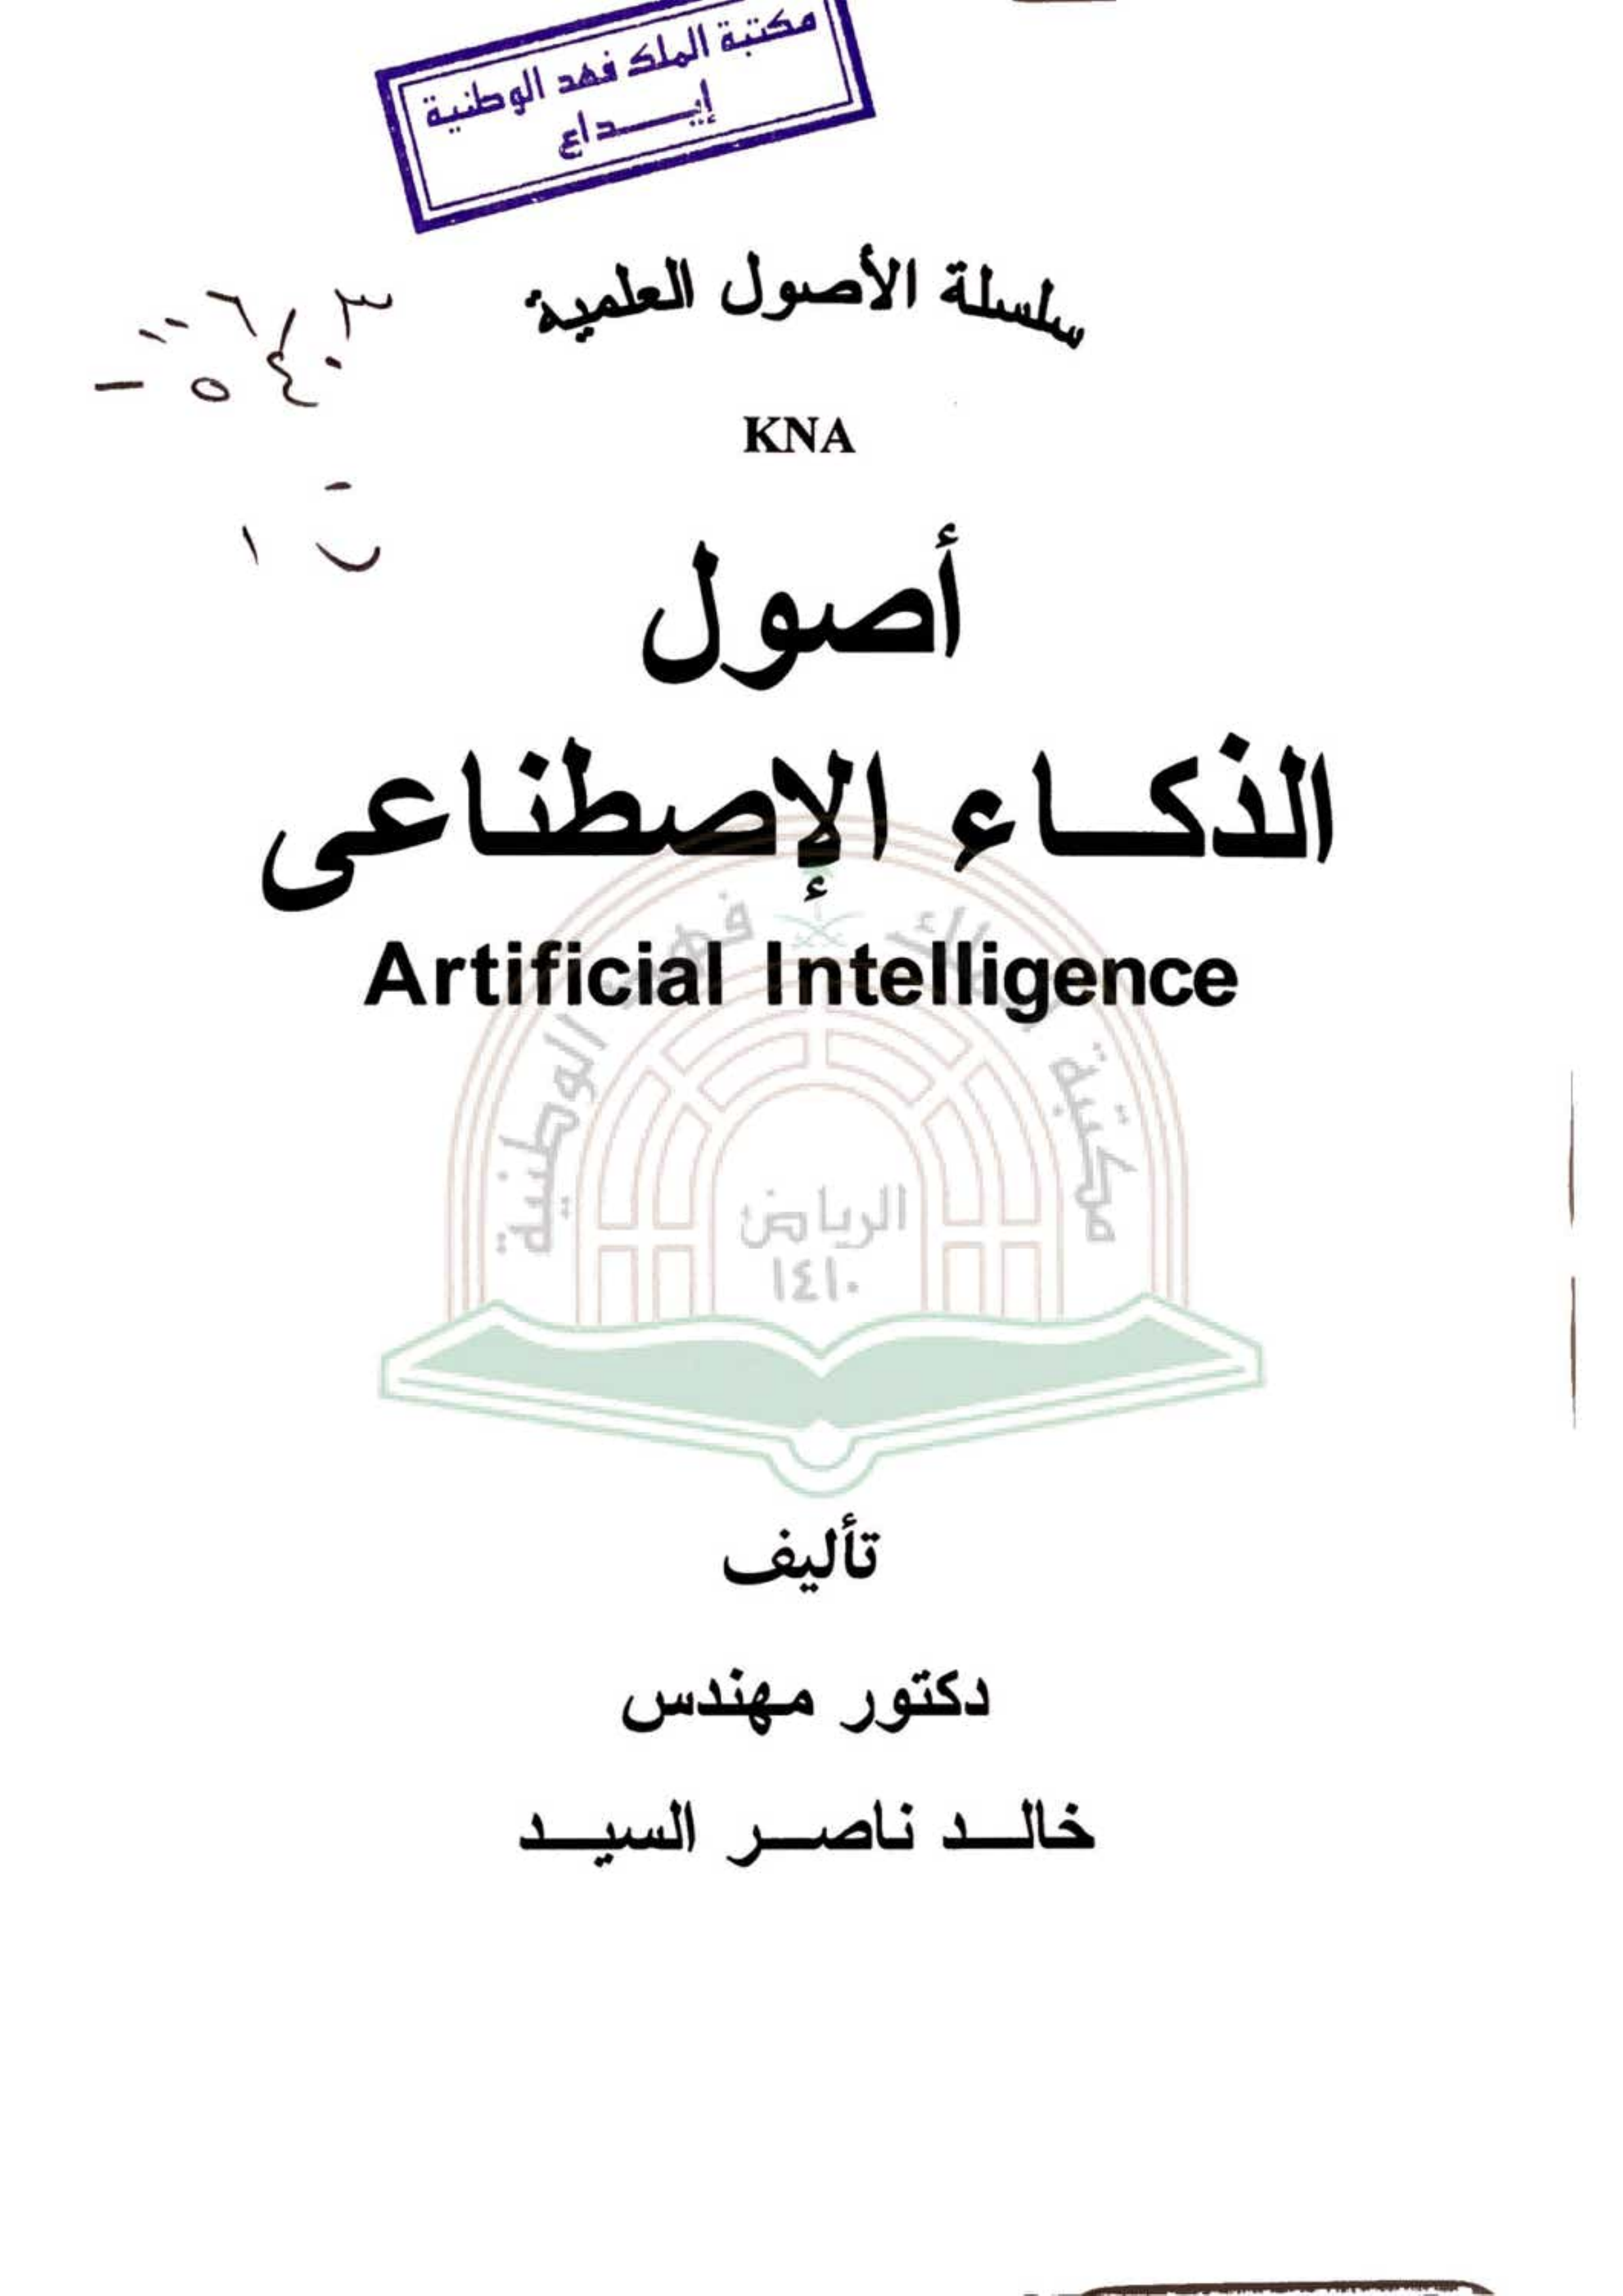 مكتبة الملك فهد الوطنية
إيــداع
سلسلة الأصول العلمية
KNA
أصول
الذكــاء الإصطناعى
Artificial Intelligence
مكتبة الملك فهد الوطنية
الرياض
١٤١٠
تأليف
دكتور مهندس
خالــد ناصــر السيــد